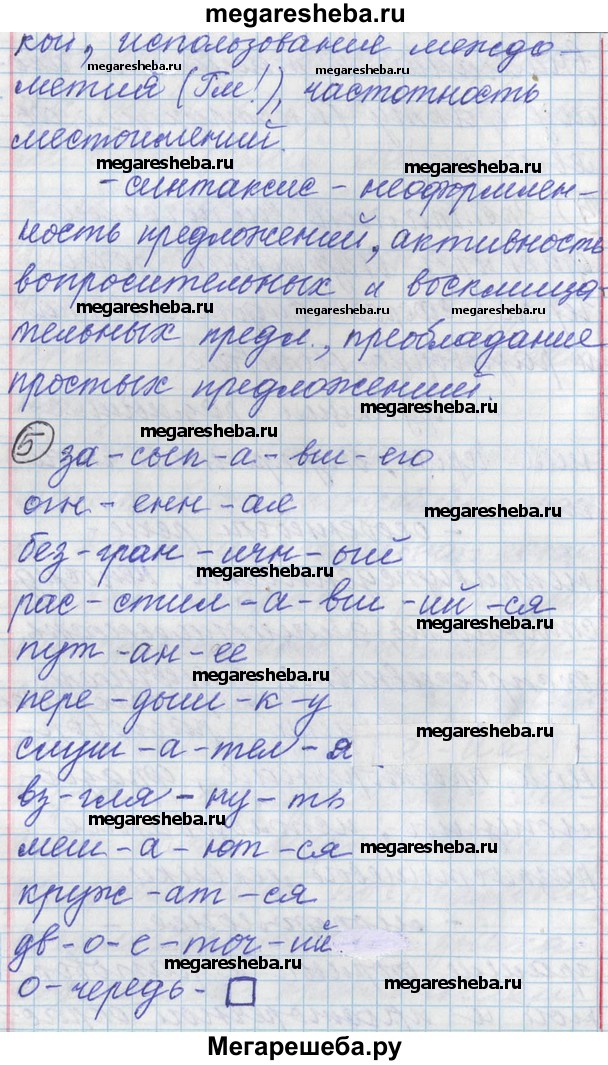 megaresheba.ru
кой, использование междо-
megaresheba.ru megaresheba.ru
метия (Гм!), частотность
местоимений.
megaresheba.ru megaresheba.ru
- синтаксис - неоформлен-
ность предложений, активность
вопросительных и восклица-
megaresheba.ru megaresheba.ru
тельных предл., преобладание
простых предложений.
megaresheba.ru
megaresheba.ru
5 за-сып-а-вш-его
огн-енн-ая
megaresheba.ru
без-гран-ичн-ый
megaresheba.ru
рас-стил-а-вш-ий-ся
megaresheba.ru
пут-ан-ее
megaresheba.ru
пере-дыш-к-у
megaresheba.ru
слуш-а-тел-я
вз-гля-ну-ть
megaresheba.ru
меш-а-ют-ся
megaresheba.ru
круж-ат-ся
дв-о-е-точ-ий
megaresheba.ru
о-чередь-
megaresheba.ru
Мегарешеба.ру